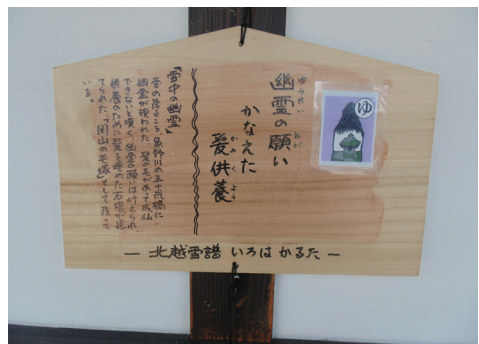 ゆ
ゆうれい ねが
幽霊の願い
かなえた
かみ く よう
髪供養
「雪中の幽霊」
雪の降るころ、魚野川の橋に、
幽霊が現われた。髪の毛があって成仏
できないと嘆く、幽霊の願いは叶えられ
供養のために髪を埋めた石塔が建
てられた。「関山の毛塚」として残って
いる。
— 北越雪譜 いろは かるた —